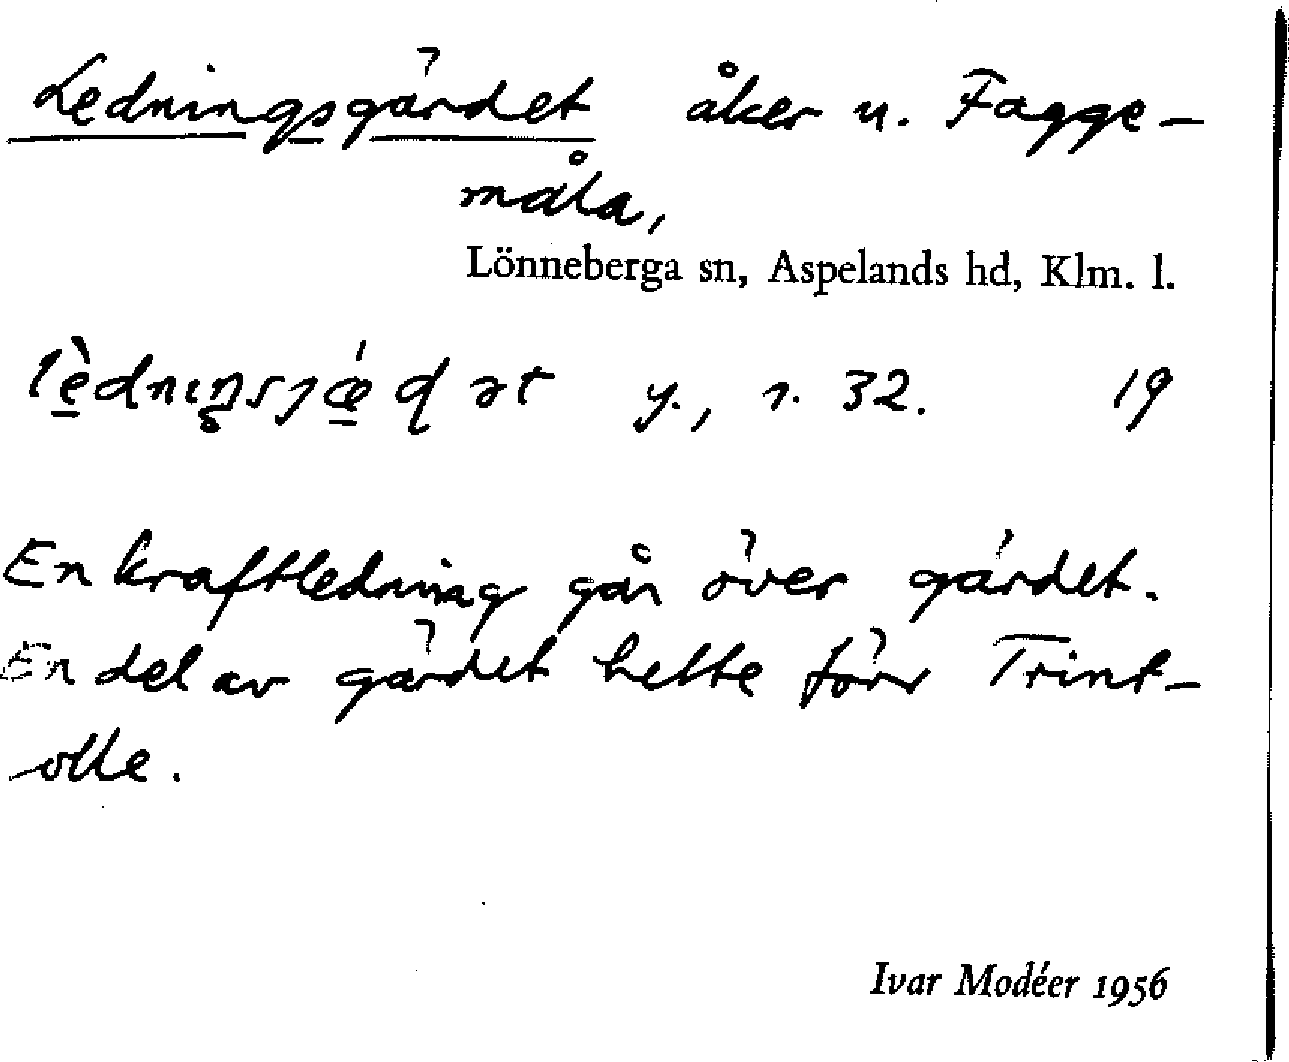 Ledningsgärdet åker u. Fagge-
måla,
Lönneberga sn, Aspelands hd, Klm. l.
y., r. 32. 19
En kraftledning går över gärdet.
En del av gärdet hette förr Trint-
olle.
Ivar Modéer 1956